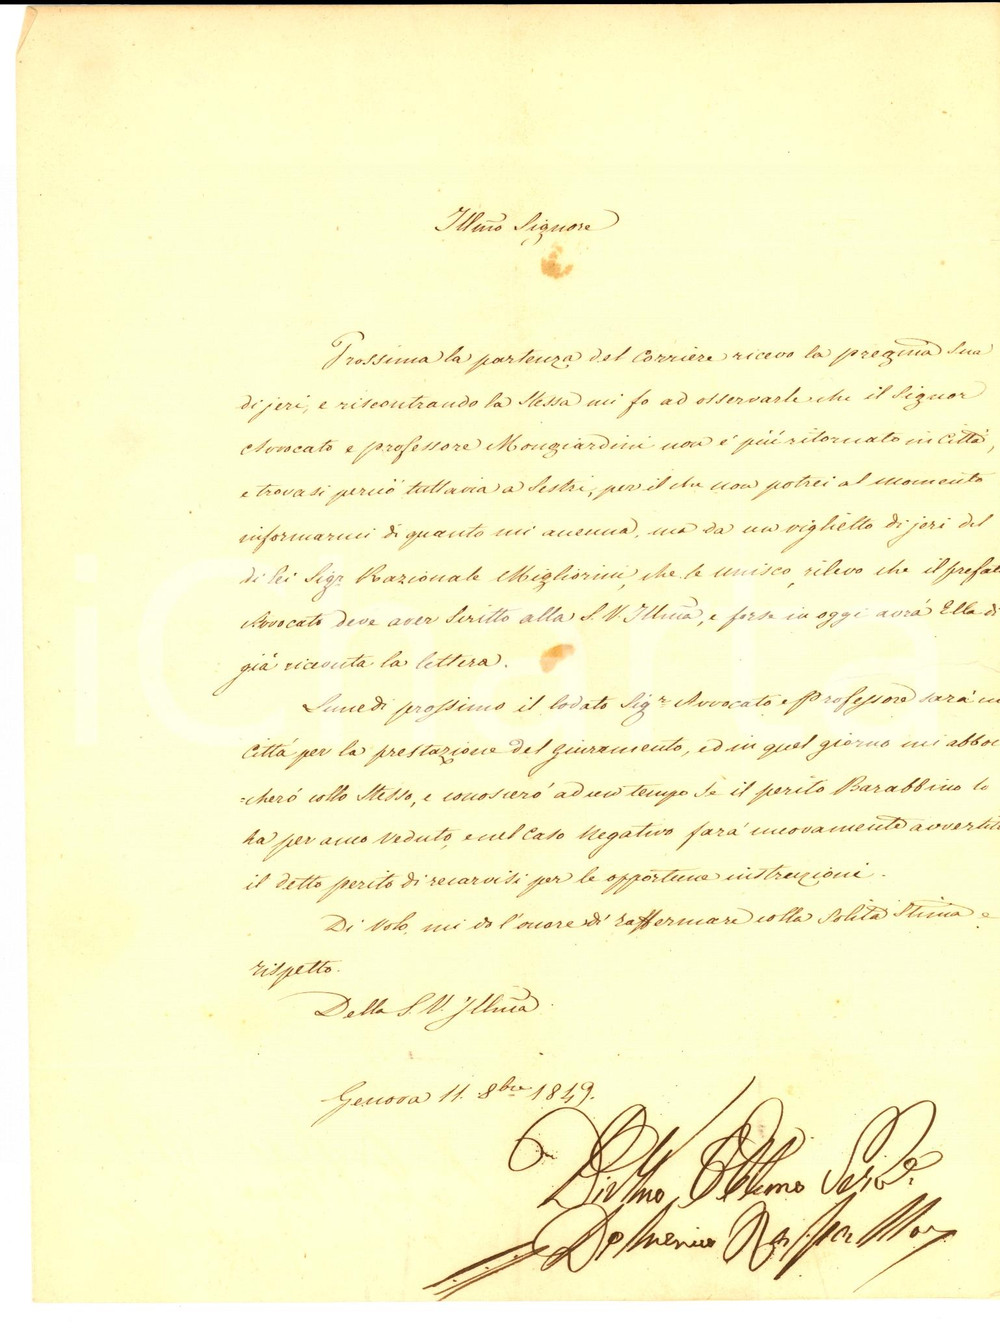 Illmo Signore
Prossima la partenza del Corriere ricevo la pregma Sua
di jeri, e riscontrando la Stessa mi fo ad osservarle che il Signor
Avvocato e professore Mongiardini non é piú ritornato in Cittá,
e trovasi perció tuttavia a Sestri, per il che non potrei al momento
informarmi di quanto mi accenna, ma da un viglietto di jeri del
di Lei Sigr Razionale Migliorini, che le unisco, rilevo che il prefat
Avvocato deve aver Scritto alla S.V. Illma, e forse in oggi avrá Ella di
giá ricevuta la lettera.
Lunedi prossimo il lodato Sigr Avvocato e Professore sará in
Cittá per la prestazione del giuramento, ed in quel giorno mi abboc
=cheró collo Stesso, e conosceró ad un tempo Se il perito Barabbino lo
ha per anco veduto, e nel Caso Negativo fará nuovamente avvertito
il detto perito di recarvisi per le opportune instruzioni.
Di Volo mi do l'onore di raffermare colla Solita Stima e
rispetto.
Della S.V. Illma
Genova 11. 8bre 1849.
Divmo Obblmo Servre
Domenico
iCharta